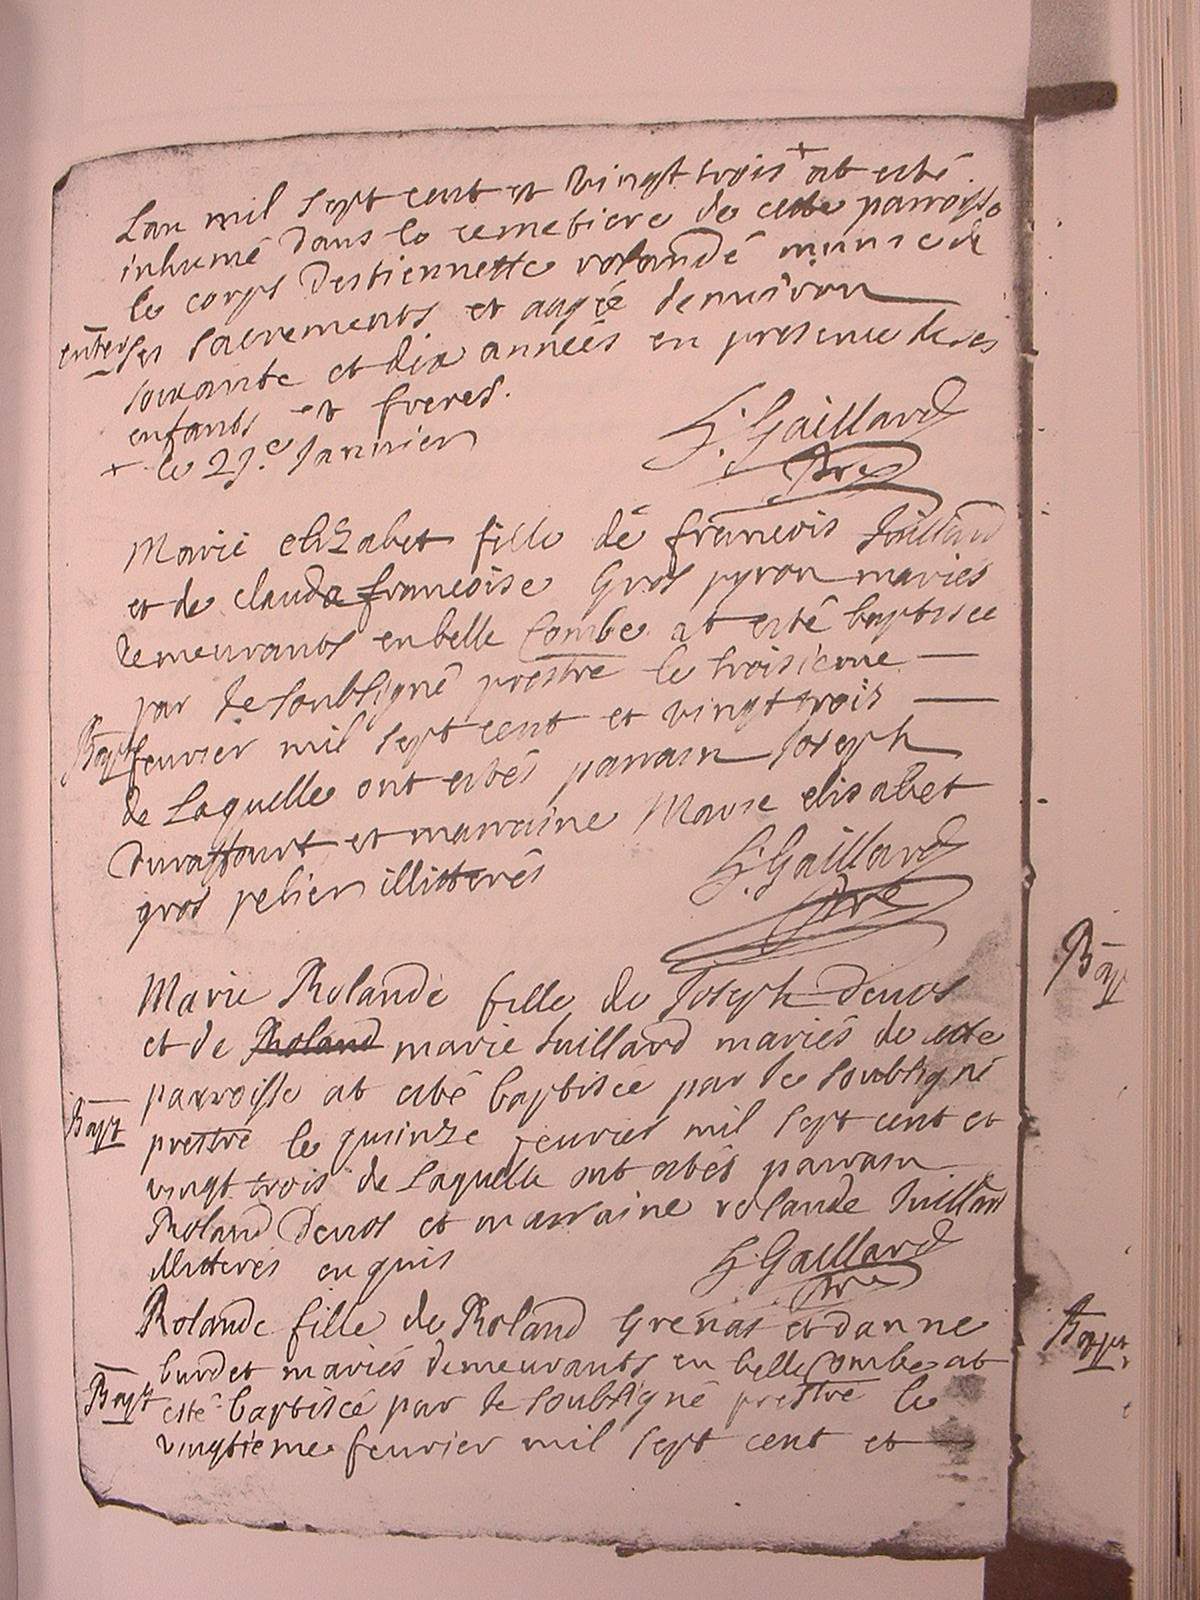 Lan mil sept cent et vingt trois + at esté
inhumé dans le cemetiere de cette parroisse
le corps destiennette rolande munie de
enter ses sacrements et aagée denuiron
soixante et dix années en presence de ses
enfants et freres.
+ le 29.e Janvier
h. Gaillard
pre
Marie elizabet fille de francois Juillard
et de clauda francoise Gros pyron mariés
demeurants en belle Combe at esté baptisée
par le soubsigné prestre le troisieme
Bapt feurier mil sept cent et vingt trois
de Laquelle ont estés parrain Joseph
duraffourt et marraine Marie elisabet
gros pelier illitterés
h. Gaillard
pre
Marie Rolande fille de Joseph Deuos
et de Roland marie Juillard mariés de cette
parroisse at esté baptisée par le soubsigné
Bapt prestre le quinze feurier mil sept cent et
vingt trois de Laquelle ont estés parrain
Roland Deuos et marraine rolande Juillard
illitterés enquis
h. Gaillard
pre
Rolande fille de Roland Grenat et danne
burdet mariés demeurants en belle Combe at
Bapt esté baptisée par le soubsigné prestre le
vingtieme feurier mil sept cent et
Bapt
Bapt